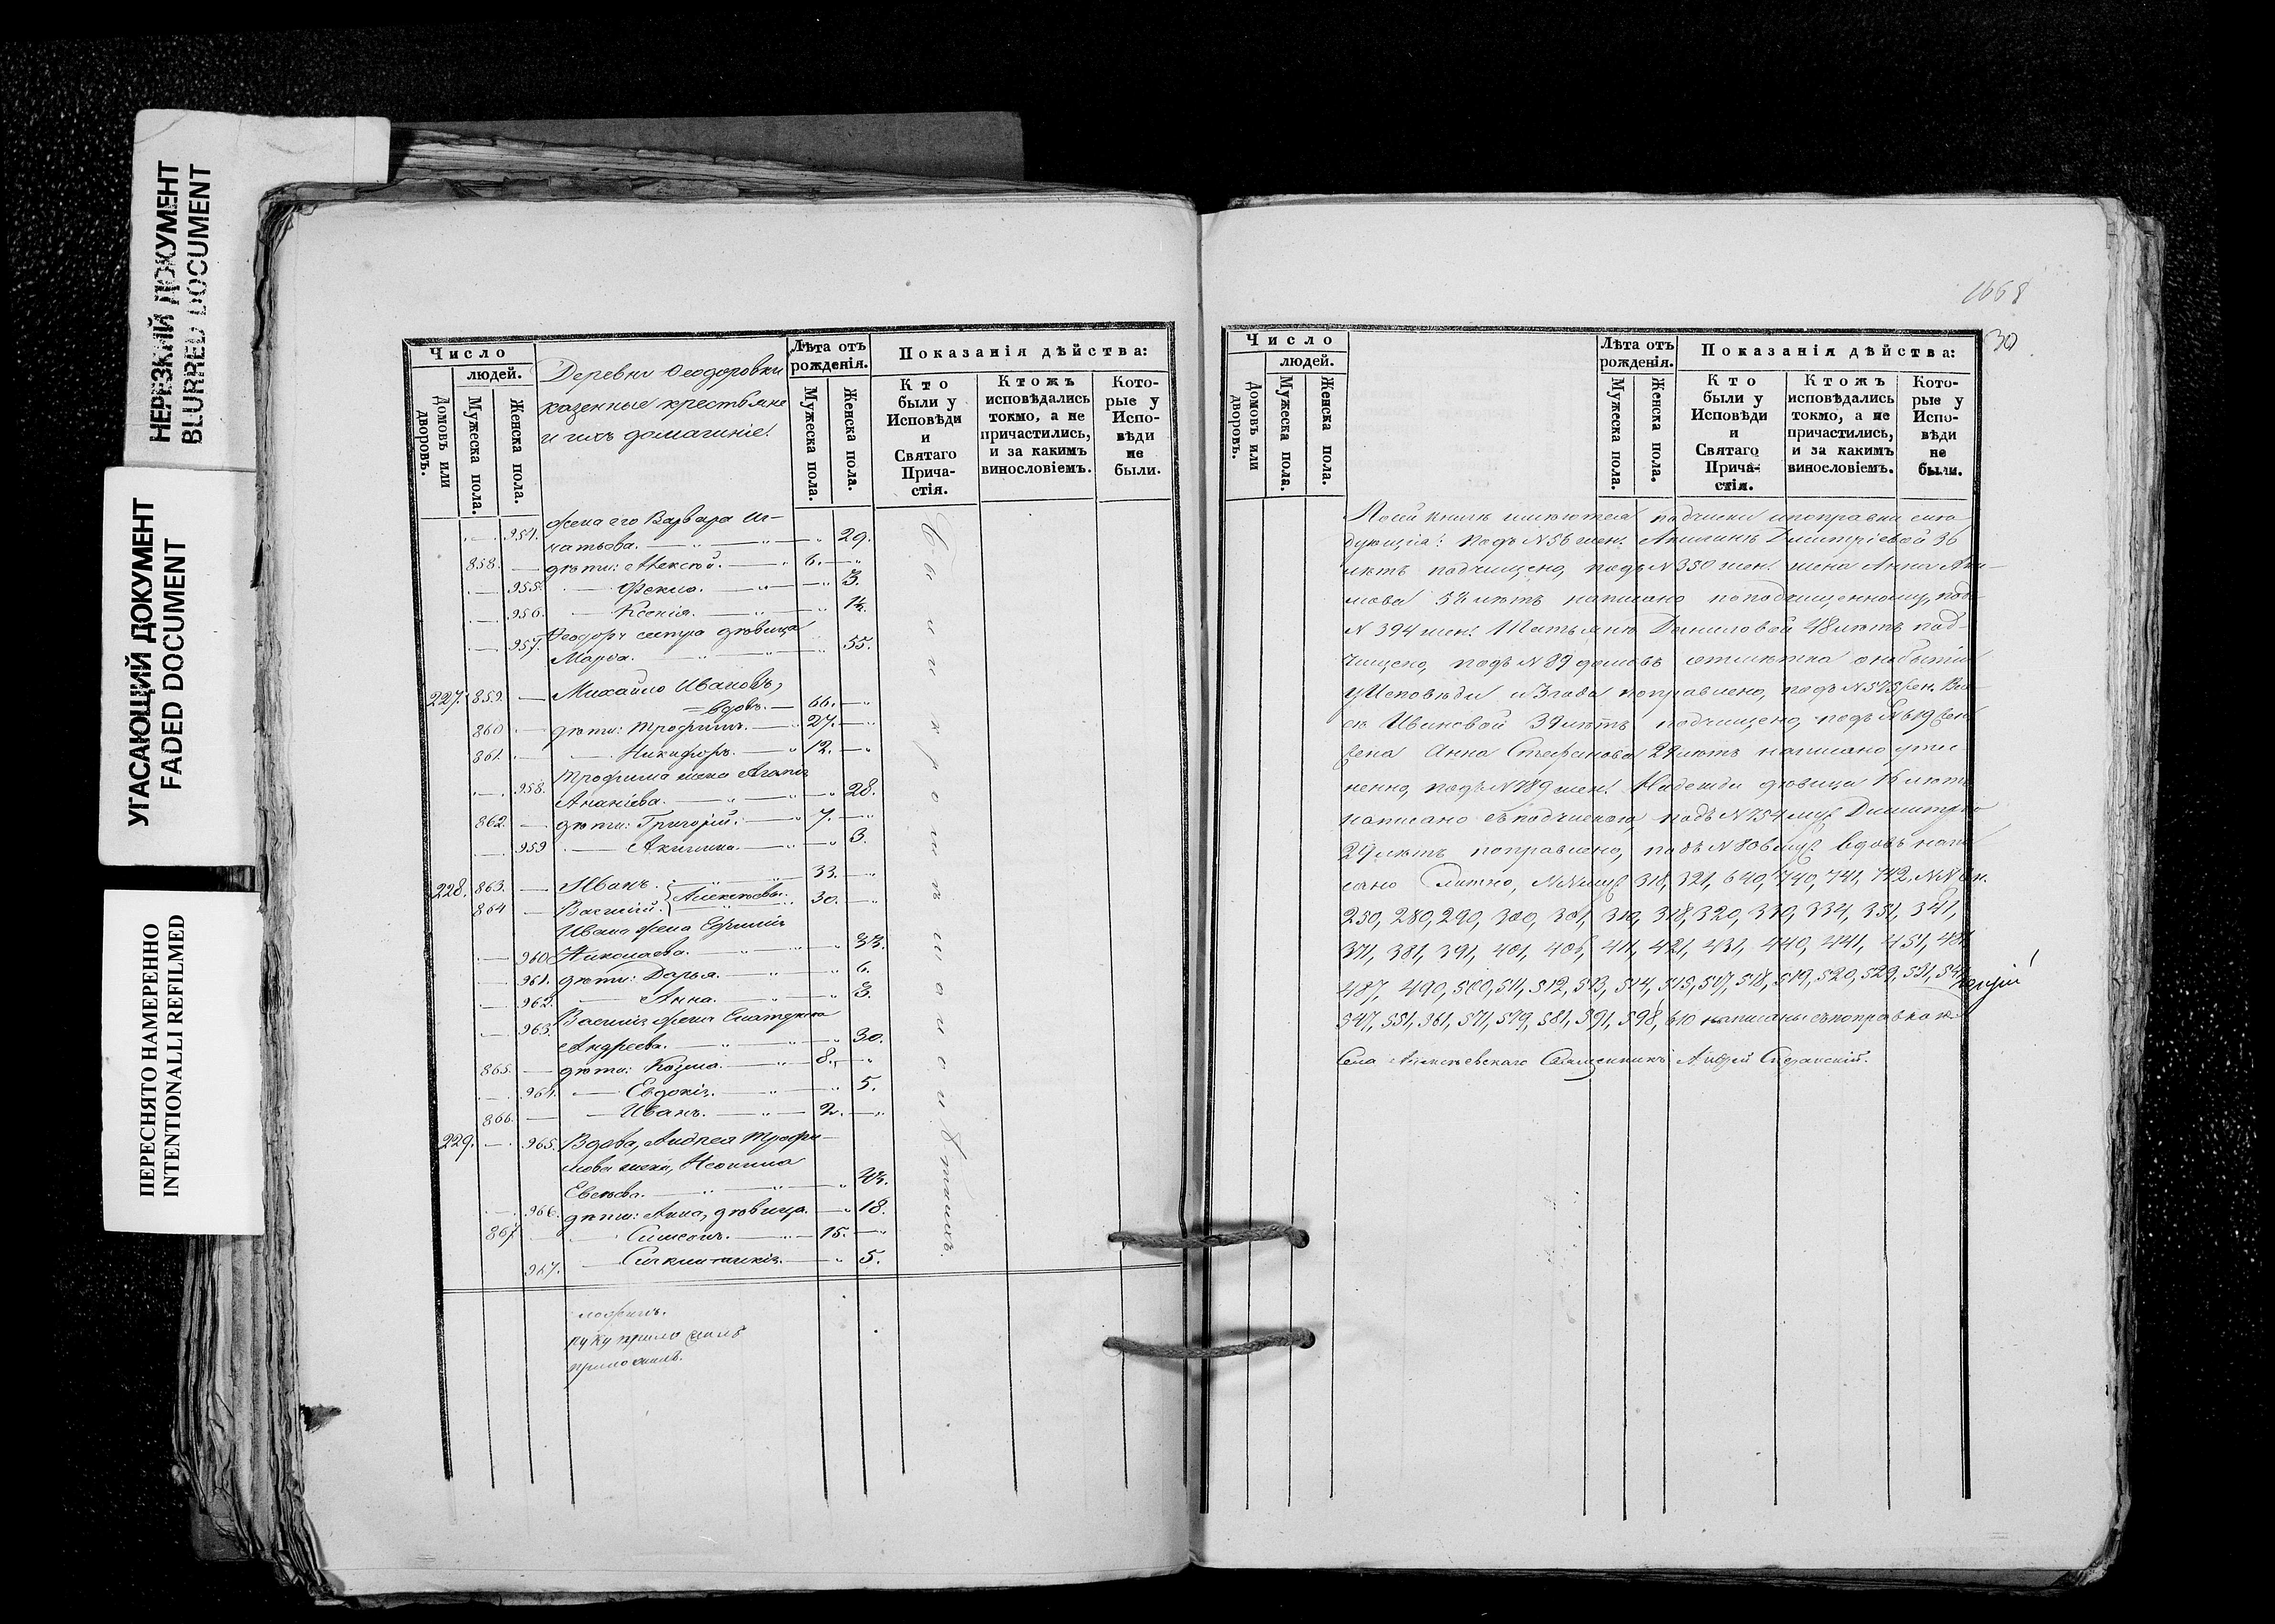 НЕРЕЗКИЙ ДОКУМЕНТ
BLURRED DOCUMENT
УГАСАЮЩИЙ ДОКУМЕНТ
FADED DOCUMENT
ПЕРЕСНЯТО НАМЕРЕННО
INTENTIONALLI REFILMED
Число
людей.
Домовъ или дворовъ.
Мужеска пола.
Женска пола.
Деревни Ѳеодоровки
казенные крестьяне
и ихъ домашніе.
Лѣта отъ рожденія.
Мужеска пола.
Женска пола.
Показанія дѣйства:
Кто были у Исповѣди и Святаго Причастія.
Ктожъ исповѣдались токмо, а не причастились, и за какимъ винословіемъ.
Которые у Исповѣди не были.
954. жена его Варвара Иг-
натьева. 29.
858. дѣти: Алексѣй. 6.
955. Фекла. 3.
956. Ксенія. 1½.
957. Ѳеодора сестра дѣвица
Марѳа. 55.
227. 859. Михайло Ивановъ,
вдовъ. 66.
860 дѣти: Трофимъ. 27.
861. Никифоръ. 12.
958. Трофима жена Агапія
Ананіева. 28.
862. дѣти: Григорій. 7.
959 Акилина. 3.
228. 863. Иванъ. 33.
864 Василій. Алексѣевы. 30.
Ивана жена Евфимія
960 Николаева. 33.
961. дѣти: Дарья. 6.
962. Анна. 3.
963. Василія жена Екатерина
Андреева. 30.
865. дѣти: Козма. 8.
964. Евдокія. 5.
866. Иванъ. 2.
229. 965. Вдова, Андрея Трофи-
мова жена,
43.
966. дѣти: Анна, дѣвица. 18.
867 Симеонъ. 15.
967. 5.
руку приложилъ
приложилъ.
1668
30
Число
людей.
Домовъ или дворовъ.
Мужеска пола.
Женска пола.
Лѣта отъ рожденія.
Мужеска пола.
Женска пола.
Показанія дѣйства:
Кто были у Исповѣди и Святаго Причастія.
Ктожъ исповѣдались токмо, а не причастились, и за какимъ винословіемъ.
Которые у Исповѣди не были.
По сей книгѣ имѣются подчистки и поправки слѣ-
дующія: подъ N 56 жен. Акилинѣ Димитріевой 36
лѣтъ подчищено, подъ N 350 жен. жена Анна Аки-
мова лѣтъ написано по подчищенному, подъ
N 394 жен. Татьянѣ Даниловой 48 лѣтъ под-
чищено, подъ N 89 домовъ отмѣтка о небытіи
у Исповѣди 3 года поправлено, подъ N 575 жен.
Ивановой 39 лѣтъ подчищено, подъ N 619 жен.
жена Анна Стефанова 29 лѣтъ написано
подъ N 789 жен. Надежда дѣвица 16 лѣтъ
написано съ подчисткою, подъ N 754 муж. Димитрію
29 лѣтъ поправлено, подъ N 806 муж. вдовъ напи-
сано NN муж. 318, 321, 640, 740, 741, 742, NN жен.
250, 280, 290, 300, 301, 310, 318, 320, 330, 334, 351, 341,
371, 381, 391, 401, 405, 411, 421, 431, 440, 441, 451, 481,
487, 490, 500, 511, 512, 513, 514, 515, 517, 518, 519, 520, 529, 531, 541
547, 551, 561, 571, 579, 581, 591, 598, 610 написаны съ поправкою.
Села Алексѣевскаго Священникъ Андрей